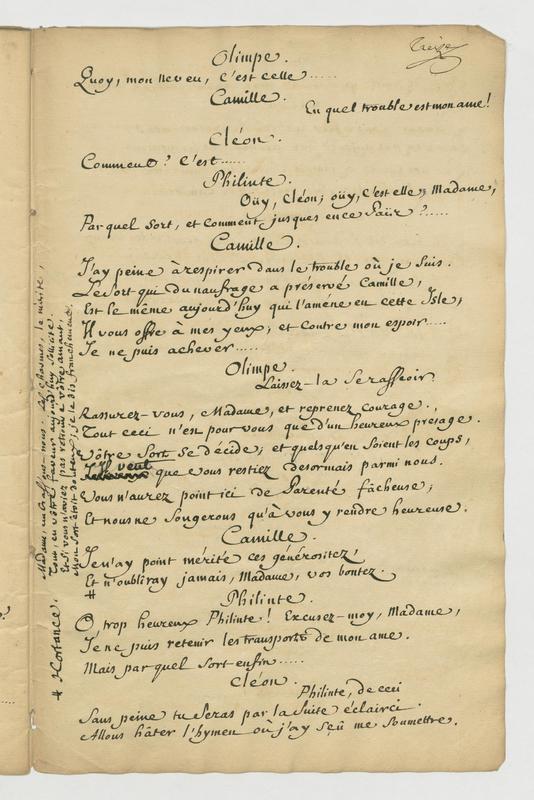 Treize
Olimpe.
Quoy, mon neveu, C'est celle.....
Camille.
En quel trouble est mon ame!
Cléon.
Comment? C'est.....
Philinte.
Oüy, Cléon; oüy, C'est elle; Madame,
Par quel Sort, et Comment jusques en ce Païs?.....
Camille.
J'ay peine à respirer dans le trouble où je Suis.
Le Sort qui du naufrage a préservé Camille,
Est le même aujourd'huy qui l'améne en cette Isle;
Il vous offre à mes yeux; et Contre mon espoir.....
Je ne puis achever.....
Olimpe.
Laissez-la Se rasseoir.
Rassurez-vous, Madame, et reprenez Courage.
Tout ceci n'est pour vous que d'un heureux présage.
Vôtre Sort Se décide; et quelsqu'en Soient les Coups,
Il veut que vous restiez desormais parmi nous.
Vous n'aurez point ici de Parenté fâcheuse;
Et nous ne Songerons qu'à vous y rendre heureuse.
Camille.
Je n'ay point mérité ces générositez,
Et n'oubliray jamais, Madame, vos bontez.
#
Philinte.
O trop heureux Philinte! Excusez-moy, Madame,
Je ne puis retenir les transports de mon ame.
Mais par quel Sort enfin.....
Cléon.
Philinte, de ceci
Sans peine tu Seras par la Suite éclairci.
Allons hâter l'hymen où j'ay sçû me Soumettre.
# Hortance.
Madame, embrassons-nous. Les charmes, le mérite,
Tout en vôtre faveur aujourd'huy Sollicite.
Et Si vous n'aviez pas retrouvé vôtre amant,
Mon Sort étoit douteux; je le dis franchement.